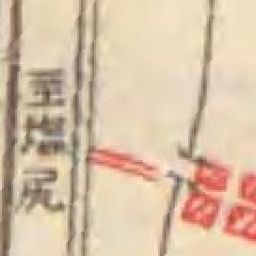 至塩尻